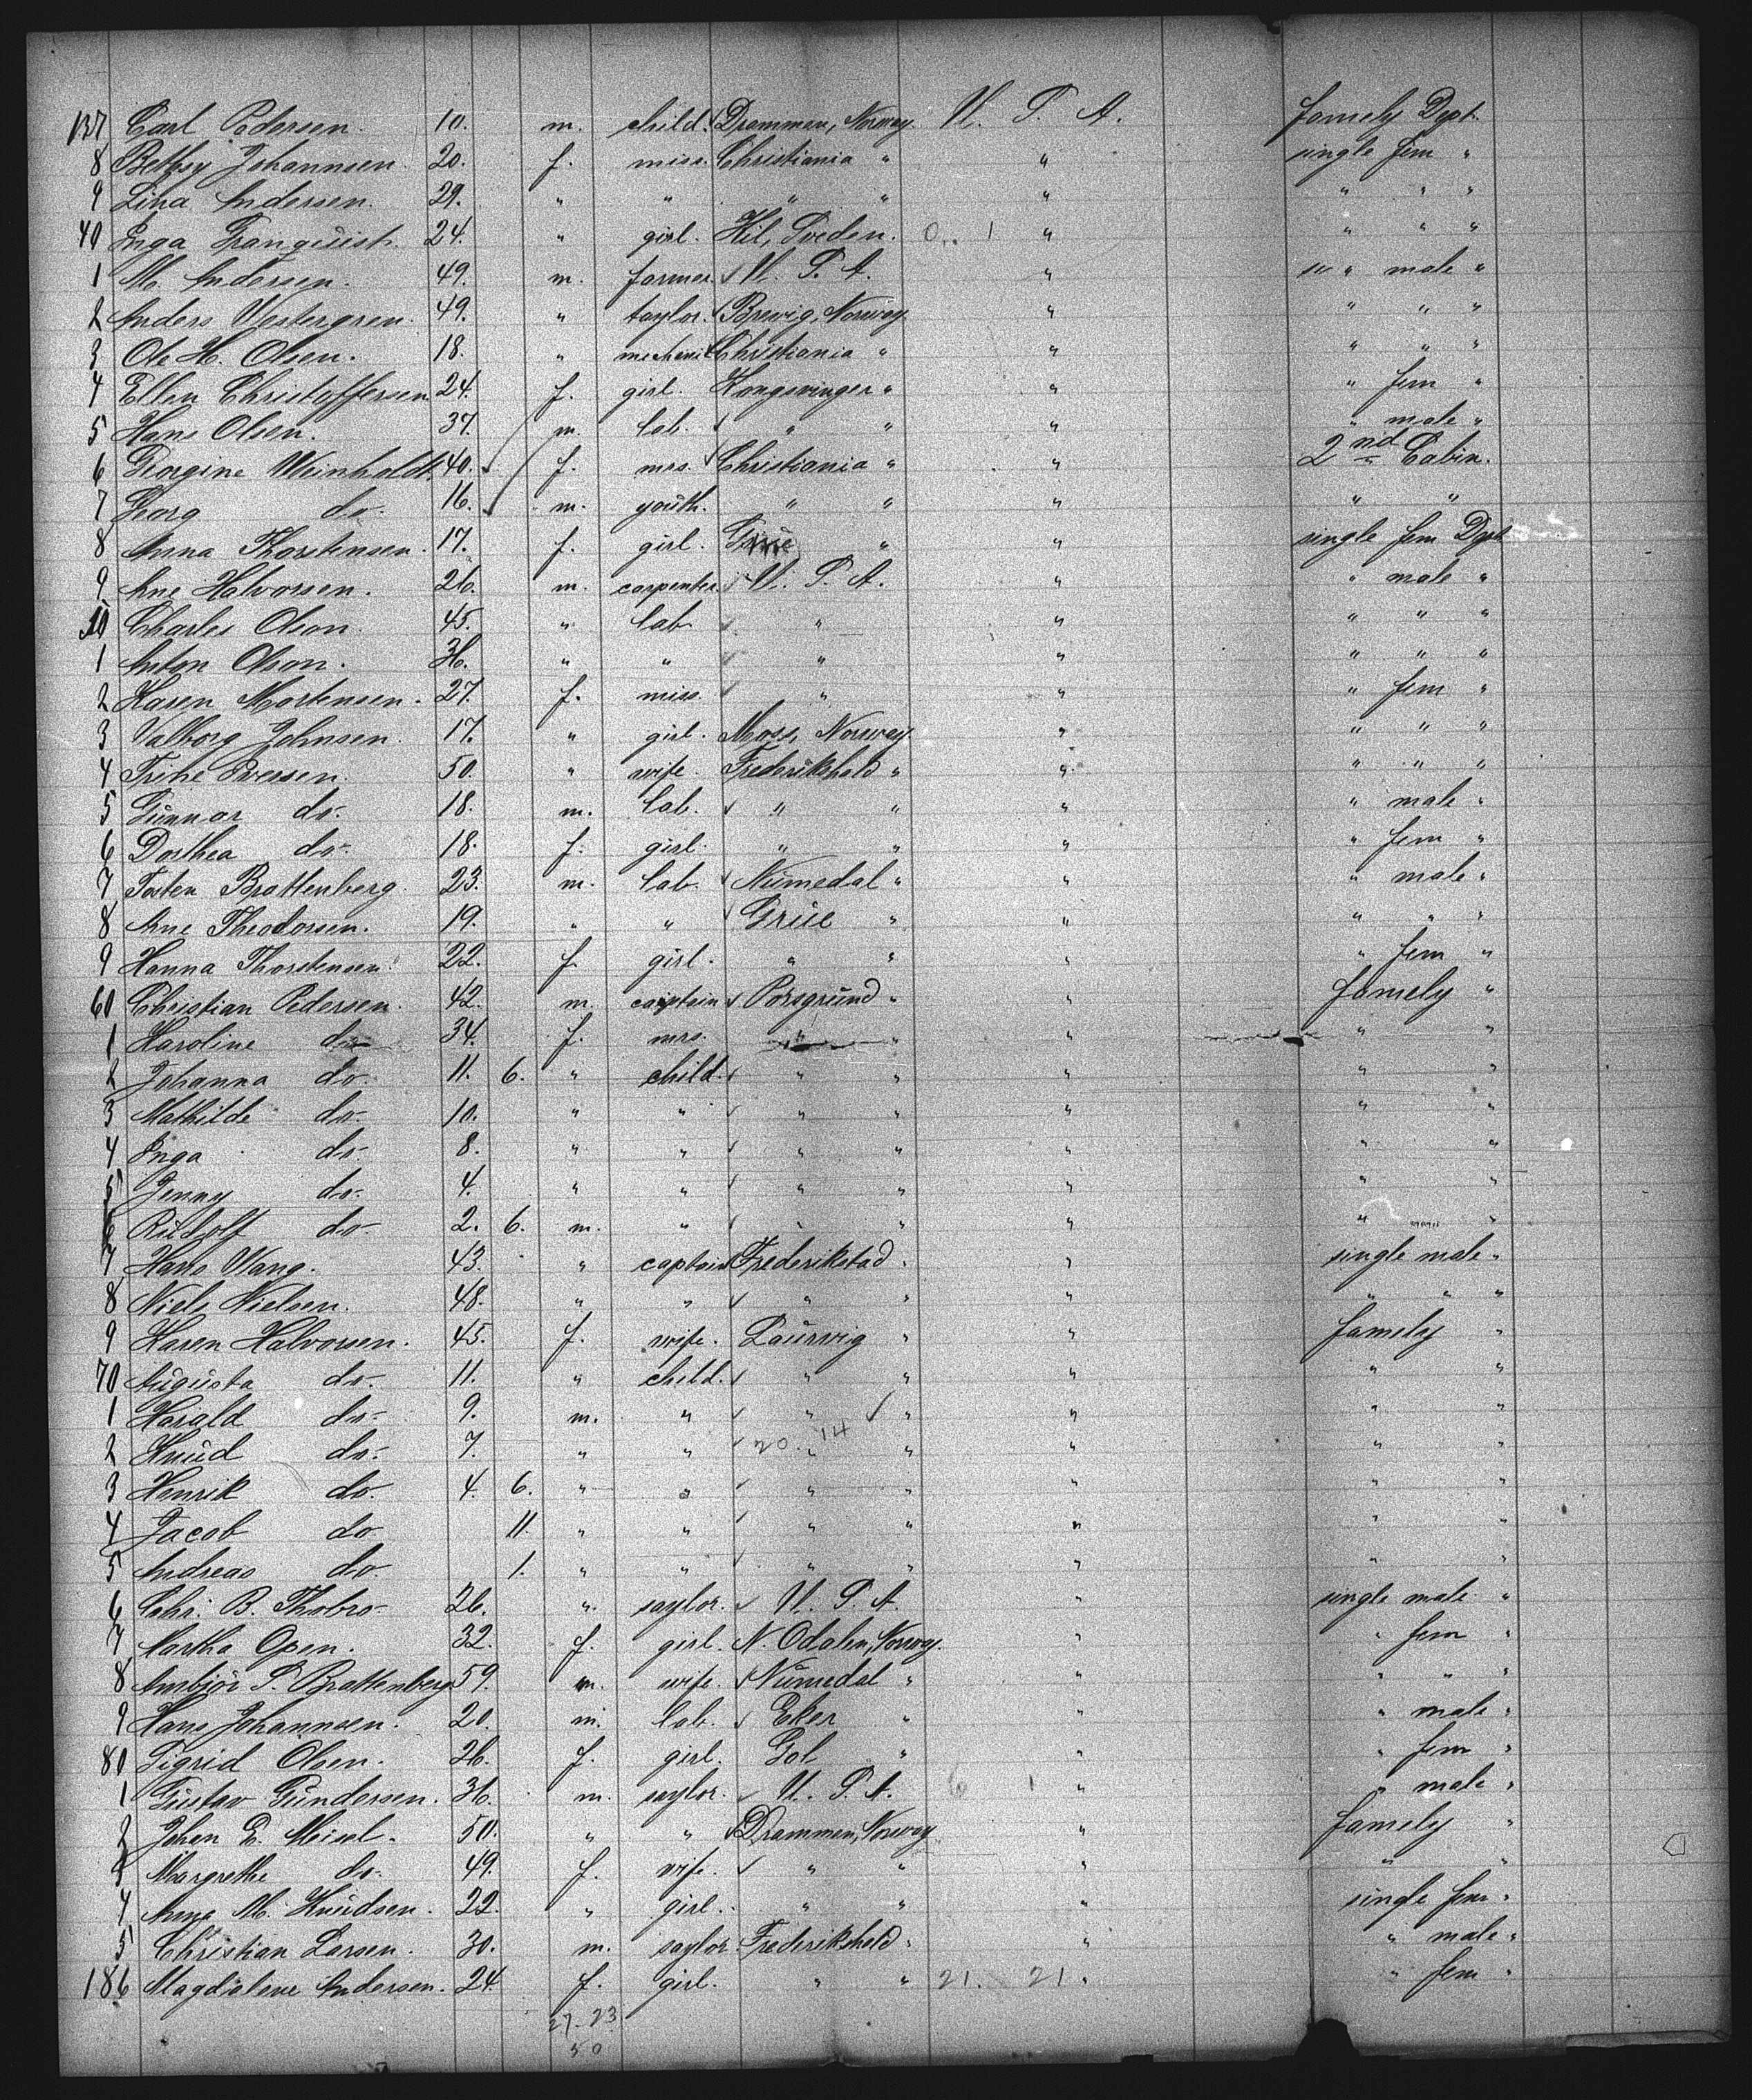 137 Carl Pedersen. 10. m. child. Drammen, Norway. U. S. A. famely Dept.
8 Bethsy Johannsen. 20. f. miss. Christiania " " single fem "
9 Lina Andersen. 29. " " " " " " " "
40 Inga Tranquist. 24. " girl. Hil, Sveden. 0. 1 " " " "
1 M. Andersen. 49. m. farmer. U. S. A. " " male "
2 Anders Westergren. 49. " taylor. Brevig, Norway " " " "
3 Ole H. Olsen. 18. " mechanic Christiania " " " " "
4 Ellen Christoffersen 24. f. girl. Kongsvinger " " " fem "
5 Hans Olsen. 37. m. lab. " " " " male "
6 Georgine Weinholdt. 40. f. mrs. Christiania " " 2nd Cabin.
7 Georg do. 16. m. youth. " " " " "
8 Anna Thorstensen. 17. f. girl. Grüe " " single fem Dept
9 Arne Halvorsen. 26. m. carpenter. U. S. A. " " male "
50 Charles Olson. 45. " lab " " " " "
1 Anton Olson. 36. " " " " " " "
2 Karen Mortensen. 27. f. miss. " " " fem "
3 Valborg Johnsen. 17. " girl. Moss, Norway " " " "
4 Trine Iversen. 50. " wife. Frederikshald " " " " "
5 Gunnar do. 18. m. lab. " " " " male "
6 Dorthea do. 18. f. girl. " " " " fem "
7 Tosten Brattenberg. 23. m. lab. Nümedal " " " male "
8 Arne Theodorsen. 19. " " Grüe " " " " "
9 Hanna Thorstensen. 22. f. girl. " " " " fem "
60 Christian Pedersen. 42. m. captain Porsgründ " " famely "
1 Karoline do. 34. f. mrs. " " " " "
2 Johanna do. 11. 6. " child. " " " " "
3 Mathilde do. 10. " " " " " " "
4 Inga do. 8. " " " " " " "
5 Jenny do. 4. " " " " " " "
6 Rüdolf do. 2. 6. m. " " " " " "
7 Hans Wang. 43. " captain Frederikstad " " single male "
8 Niels Nielsen. 48. " " " " " " " "
9 Karen Halvorsen. 45. f. wife. Laürvig " " famely "
70 Aügüsta do. 11. " child. " " " " "
1 Harald do. 9. m. " " " " " "
2 Knüd do. 7. " " 20. 14 " " " " "
3 Henrik do. 4. 6. " " " " " "
4 Jacob do 11. " " " " " " "
5 Andreas do 1. " " " " " " "
6 Chr. B. Thobro. 26. " saylor. U. S. A. " single male "
7 Martha Open. 32. f. girl. N. Odalen, Norway. " " fem "
8 Ambjör S. Brattenberg 59. m. wife. Nümedal " " " " "
9 Hans Johannsen. 20. m. lab. Eker " " " male "
80 Sigrid Olsen. 26. f. girl. Gol " " " fem "
1 Güstav Gündersen. 36. m. saylor. U. S. A. 6 1 " " male "
2 Johan E. Meisel. 50. " " Drammen, Norway " famely "
3 Margrethe do. 49. f. wife. " " " " "
4 Anna M. Knüdsen. 22. " girl. " " " single fem "
5 Christian Larsen. 30. m. saylor Frederikshald " " " male "
186 Magdalene Andersen. 24 f. girl. " " 21. 21 " " fem "
27-23
50